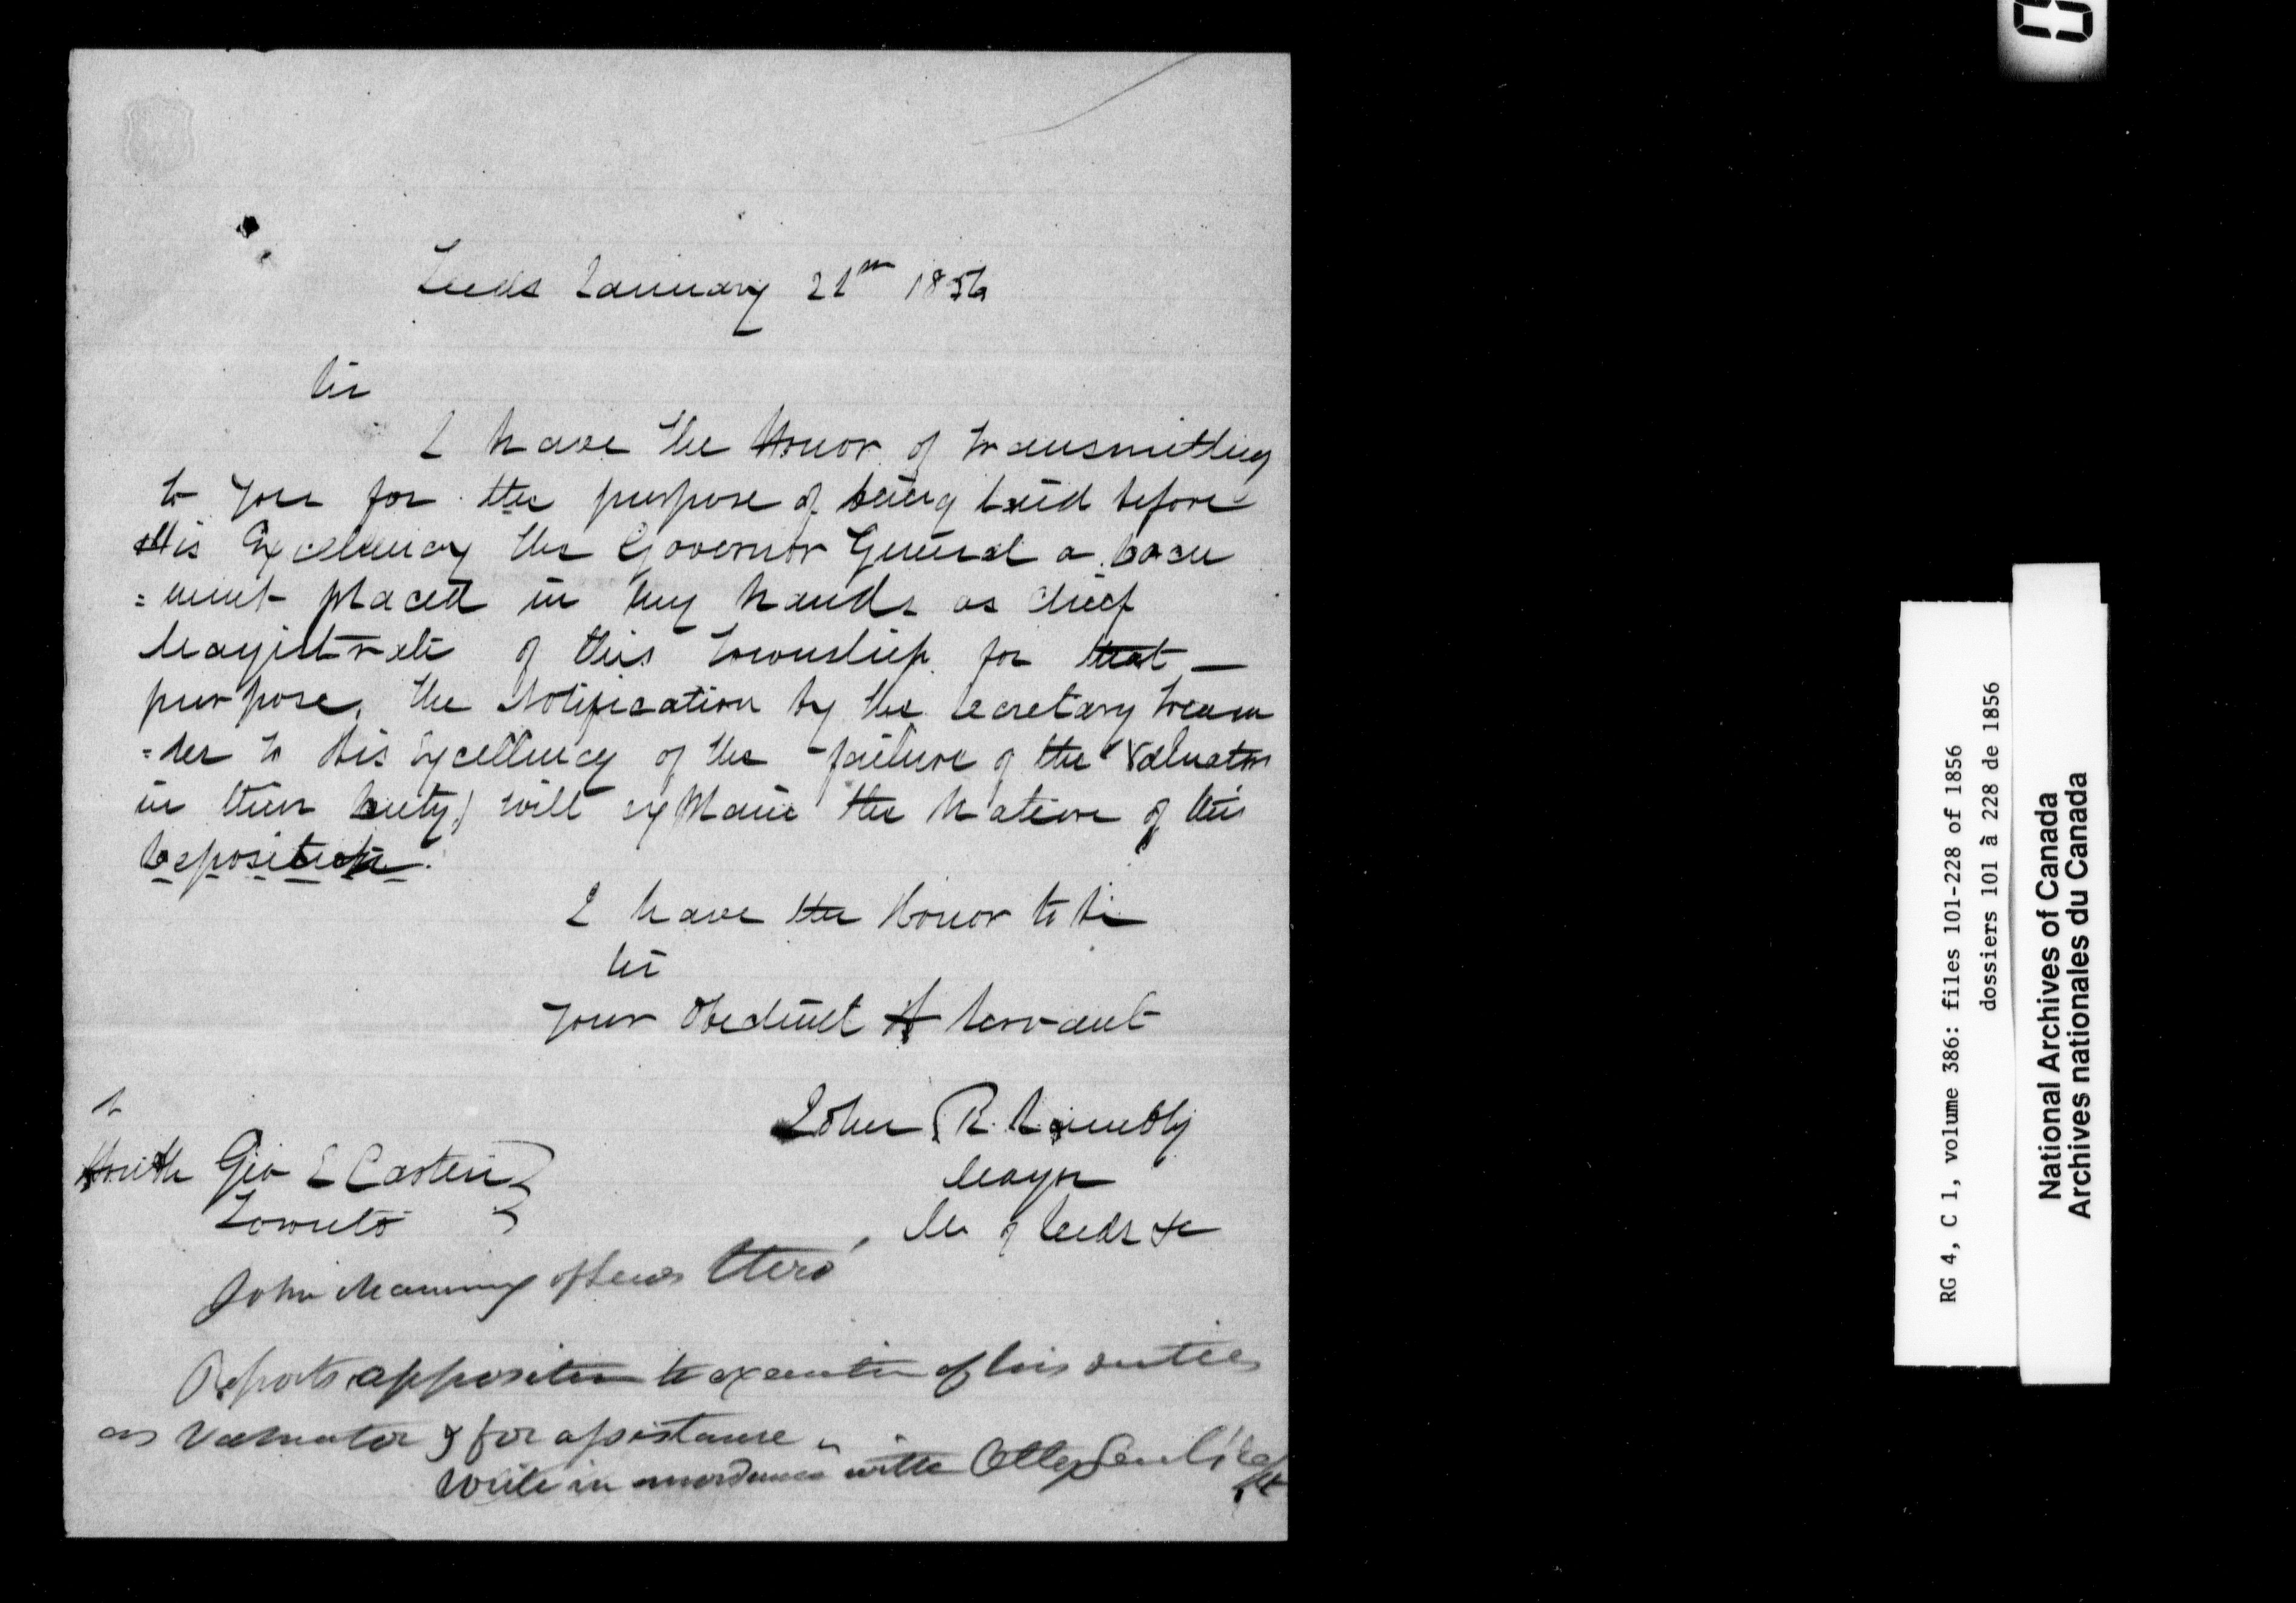 Leeds January 21st 1856
Sir
I have the Honor of transmitting
to you for the purpose of being laid before
His Excellency the Governor General a Docu
=ment placed in my hands as Chief
Magistrate of this Township for that
purpose, the Notification by the Secretary Treasu
=rer to His Excellency of the failure of the Valuators
in their duty, will explain the Nature of this
Deposition.
I have the Honor to be
Sir
Your Obedient Servant
John R. Lambly
Mayor
M of Leeds &c
To
Geo E Cartier
Toronto
John Manning of Leeds
Reports opposition to execution of his duties
as Valuator & for assistance
Write in accordance with Atty Genl
RG 4, C 1, volume 386: files 101-228 of 1856
dossiers 101 à 228 de 1856
National Archives of Canada
Archives nationales du Canada